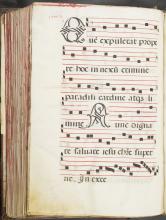 Que expulerat prope
re hoc in nexū crimine
paradisi cardine atqz li
mine A ine digna
re saluare iesu chr̄e super
ne. Jn exce